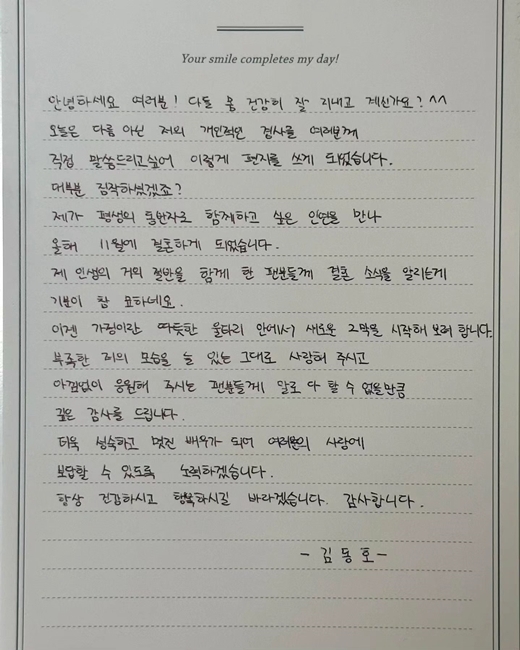 Your smile completes my day!
안녕하세요 여러분! 다들 몸 건강히 잘 지내고 계신가요? ^^
오늘은 다름 아닌 저의 개인적인 경사를 여러분께
직접 말씀드리고싶어 이렇게 편지를 쓰게 되었습니다.
대부분 짐작하셨겠죠?
제가 평생의 동반자로 함께하고 싶은 인연을 만나
올해 11월에 결혼하게 되었습니다.
제 인생의 거의 절반을 함께 한 팬분들께 결혼 소식을 알리는게
기분이 참 묘하네요.
이젠 가정이란 따뜻한 울타리 안에서 새로운 2막을 시작해 보려 합니다.
부족한 저의 모습을 늘 있는 그대로 사랑해 주시고
아낌없이 응원해 주시는 팬분들께 말로 다 할 수 없을만큼
깊은 감사를 드립니다.
더욱 성숙하고 멋진 배우가 되어 여러분의 사랑에
보답할 수 있도록 노력하겠습니다.
항상 건강하시고 행복하시길 바라겠습니다. 감사합니다.
- 김동호 -